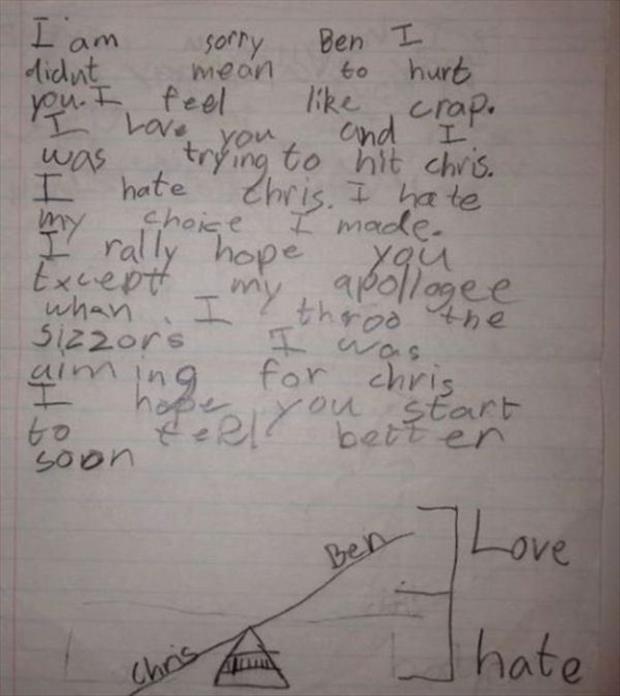 I am sorry Ben I
didnt mean to hurt
you. I feel like crap.
I Love you and I
was trying to hit chris.
I hate chris. I hate
my choice I made.
I rally hope you
Except my apollogee
whan I throo the
sizzors I was
aiming for chris
I hope you start
to feel better
soon
Ben
Love
Chris
hate